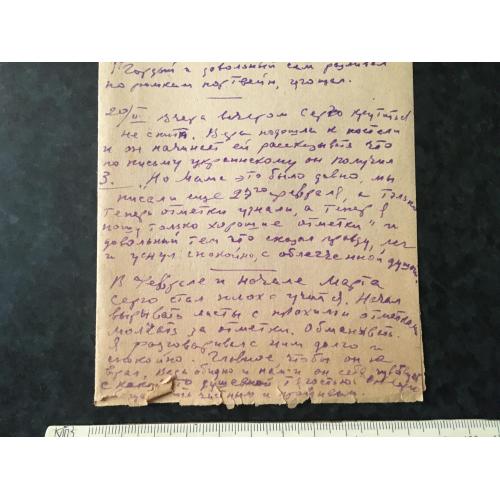 Гордый и довольный сам разлил
по рюмкам портвейн, угощал.
20/III Вчера вечером Серго крутится
не спит. Вера подошла к постели
и он начинает ей рассказывать что
по письму украинскому он получил
3. „Но Мама это было давно, мы
писали еще 27го февраля, а только
теперь отметки узнали, а теперь я
ношу только хорошие отметки" и
довольный тем что сказал правду, лег
и уснул спокойно, с облегченной душой.
В Феврале и начале Марта
Серго стал плохо учится. Начал
вырывать листы с плохими отметками
молчать за отметки. Обманывать.
Я разговаривал с ним долго и
спокойно. Главное чтобы он не
врал. Ведь обидно и нам и он себя чувствует
с какой то душевной тяжестью
чистым и правдивым.